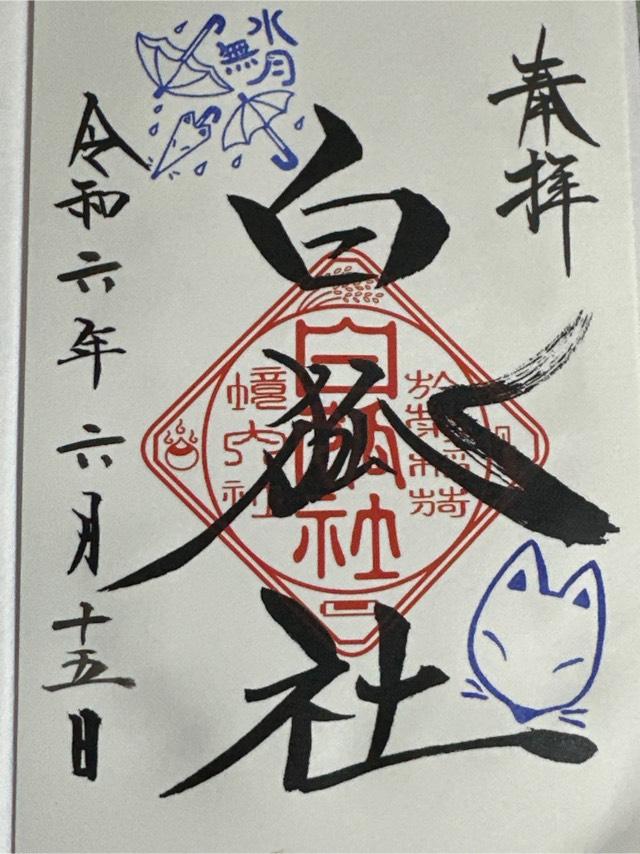 奉拝
白狐社
令和六年六月十五日
水無月
白狐社
境内社